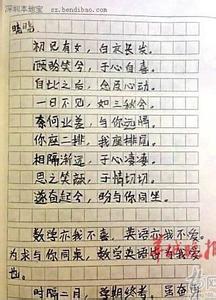 深圳本地宝
sz.bendibao.com
晓晓
初见君女,白衣长发。
顾盼笑兮,于心自喜。
自此之后,念及心动。
一日不见,如三秋兮。
奈何业差,与你远隔。
你座二排,我座排尾。
相隔渐远,于心凄凄。
思之笑颜,于情切切。
遂自起兮,盼与你同桌。
数学亦我不喜,英语亦我不爱。
为求与你同桌,数学英语
时隔二月,学期终考,